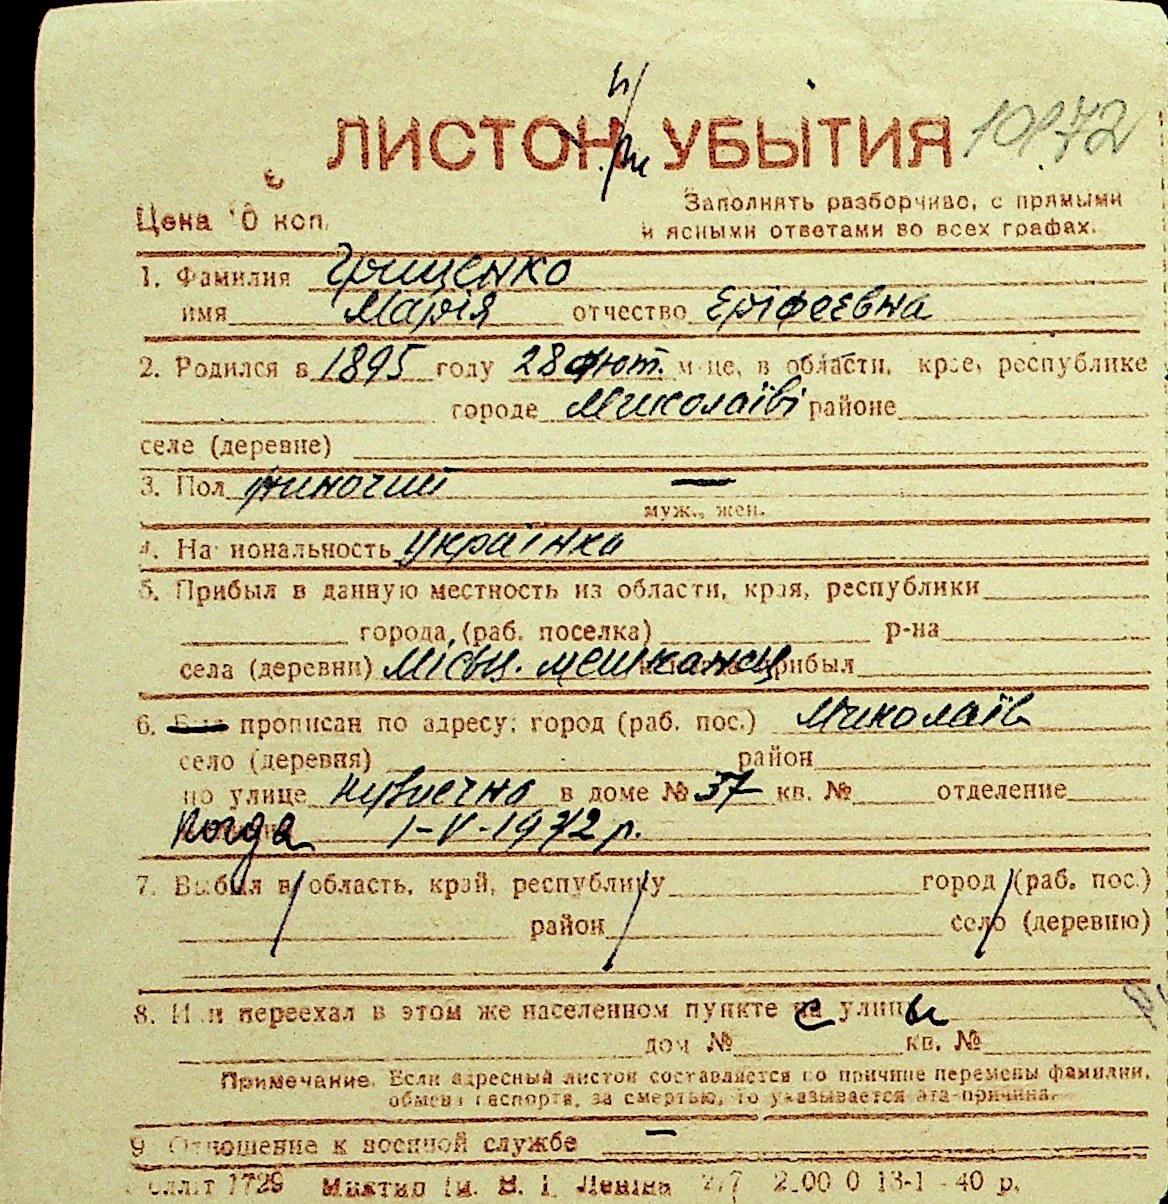 ЛИСТОК УБЫТИЯ 10/72
Цена 10 коп.
Заполнять разборчиво, с прямыми
и ясными ответами во всех графах.
1. Фамилия Грищенко
имя Марія отчество Еріфеевна
2. Родился в 1895 году 28 лют. м-це, в области, крае, республике
городе Миколаїві районе
селе (деревне)
3. Пол жиночий —
муж., жен.
4. Национальность українка
5. Прибыл в данную местность из области, края, республики
города, (раб. поселка) р-на
села (деревни) Місьц. мешканец прибыл
6. прописан по адресу: город (раб. пос.) Миколаїв
село (деревня) район
по улице в доме № 37 кв. № отделение
Когда 1-V-1942 р.
7. Выбыл в область, край, республику город (раб. пос.)
район село (деревню)
8. Или переехал в этом же населенном пункте с улицы
дом № кв. №
Примечание. Если адресный листок составляется по причине перемены фамилии,
обмена паспорта, за смертью, то указывается эта причина.
9 Отношение к военной службе —
1729 ім. В. І. Леніна 13-1-40 р.